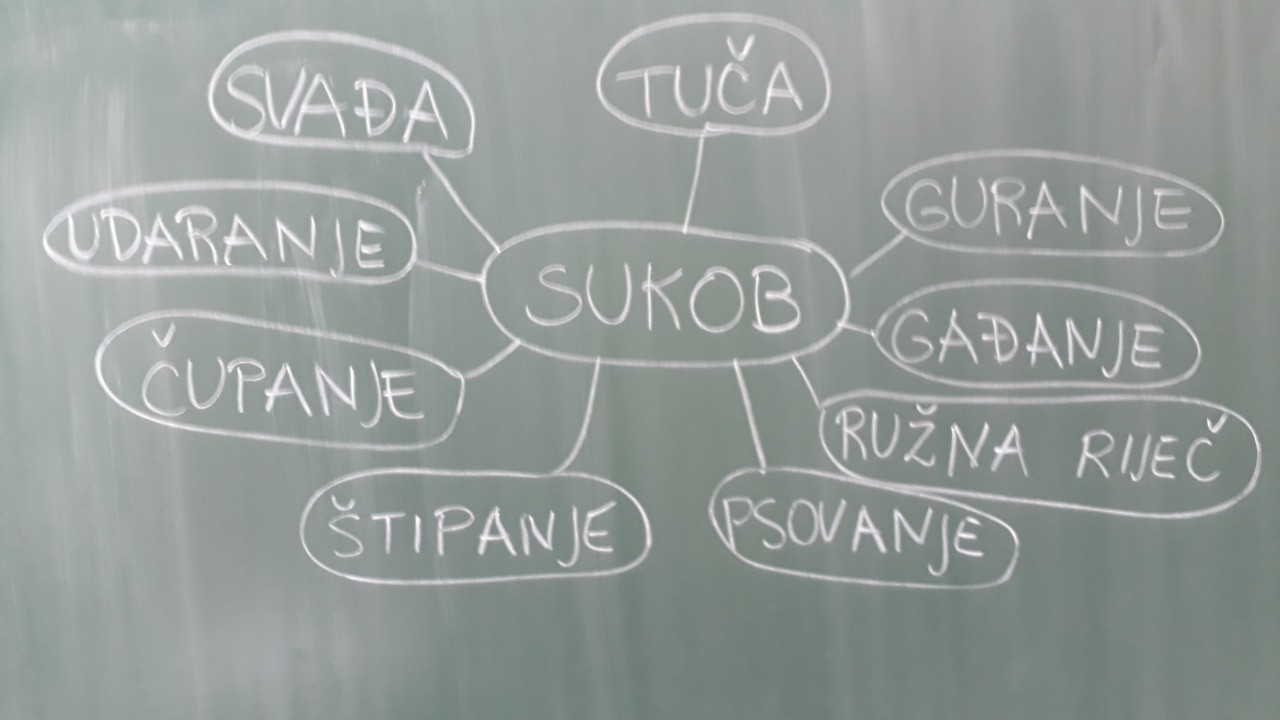 SVAĐA
TUČA
UDARANJE
GURANJE
SUKOB
GAĐANJE
ČUPANJE
RUŽNA RIJEČ
ŠTIPANJE
PSOVANJE